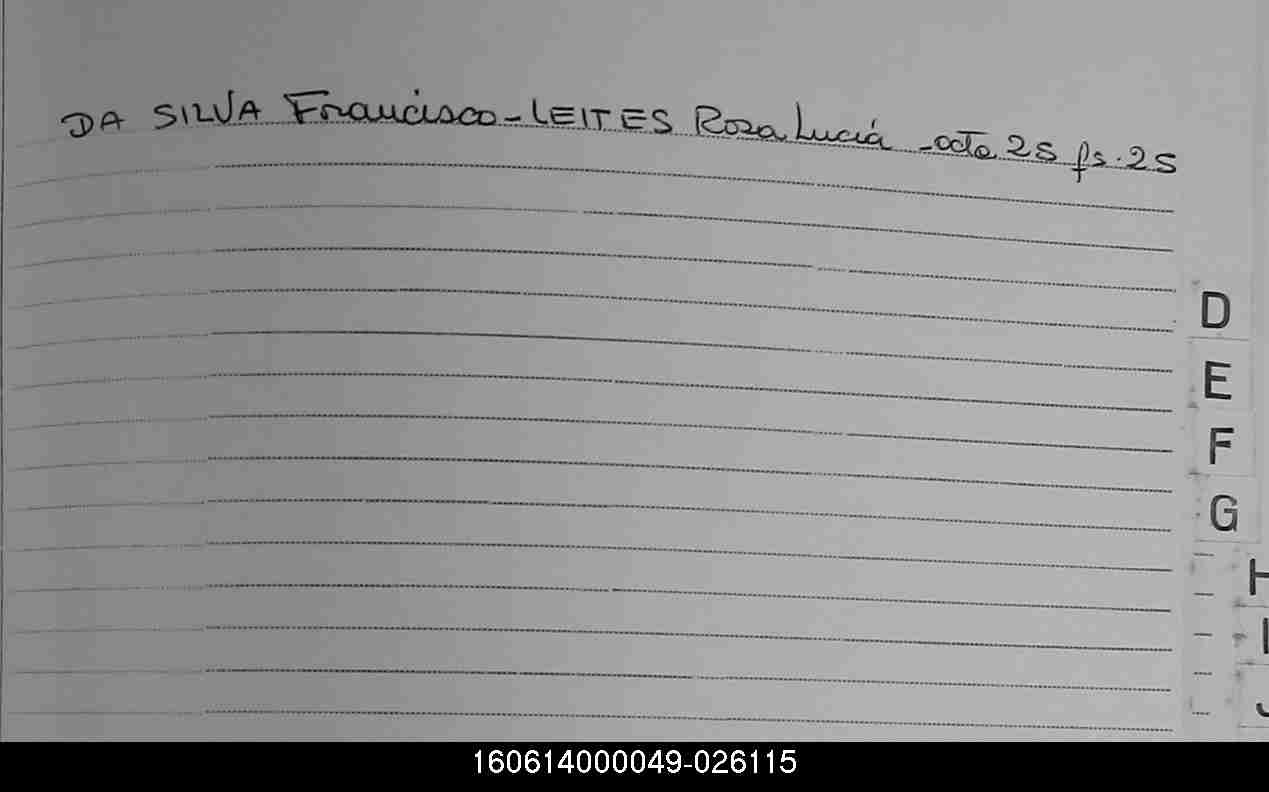 DA SILVA Francisco - LEITES Rosa Lucía - acta 25 fs. 25
D
E
F
G
H
I
J
160614000049-026115